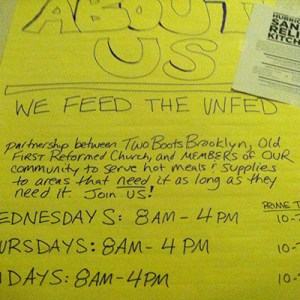 ABOUT
US
WE FEED THE UNFED
partnership between Two Boots Brooklyn, Old
FIRST Reformed Church, and MEMBERS of OUR
community to serve hot meals & supplies
to areas that need it as long as they
need it. Join US!
EDNESDAYS: 8AM - 4PM
URSDAYS: 8AM - 4PM
IDAYS: 8AM - 4PM
PRIME T
10-
10-
10-
HURRI
SAN
RELI
KITCH